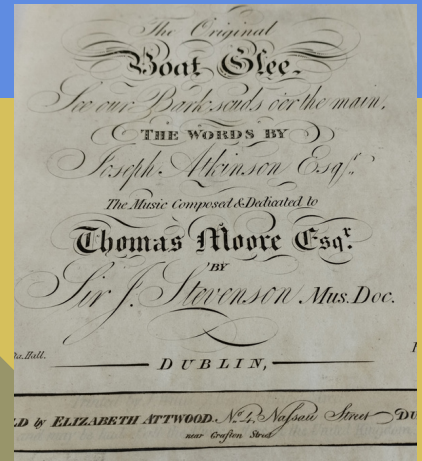 The Original
Boat Glee.
See our Bark scuds o'er the main,
THE WORDS BY
Joseph Atkinson Esqr.
The Music Composed & Dedicated to
Thomas Moore Esqr.
BY
Sir J. Stevenson Mus. Doc.
Hall.
DUBLIN,
LD by ELIZABETH ATTWOOD. No. 4, Nassau Street DU
near Grafton Street